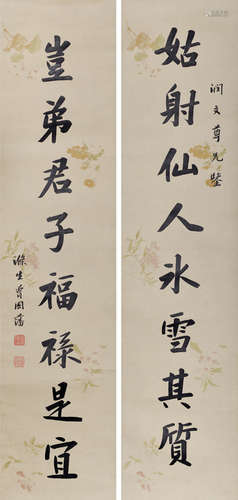 姑射仙人冰雪其質
润文尊兄鑒
豈弟君子福祿是宜
滌生曾国藩